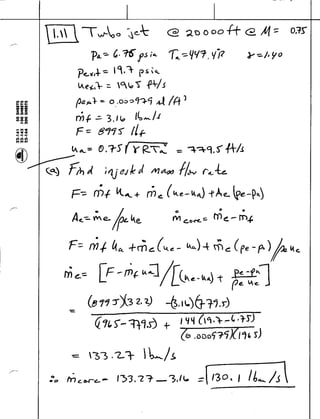 1.11 Turbojet @ 20000 ft @ M= 0.75
Pa= 6.75 psia Ta=447.4°R γ=1.40
Pexit= 19.7 psia
uexit= 1965 ft/s
ρexit= 0.000979 sl/ft³
ṁf= 3.16 lbm/s
F= 8995 lbf
ua= 0.75√γRTa = 779.5 ft/s
(a) Find injested mass flow rate
F= ṁf ua + ṁe (ue-ua) +Ae (pe-pa)
Ae=ṁe/ρeue ṁcore= ṁe-ṁf
F= ṁf ua +ṁe(ue-ua)+ṁe(pe-pa)/ρeue
ṁe= [F-ṁf ua]/[(ue-ua)+ pe-pa/ρe ue]
= (8995)(32.2) -(3.16)(779.5)
(1965-779.5) + 144(19.7-6.75)/(0.000979)(1965)
= 133.27 lbm/s
∴ ṁcore= 133.27-3.16 = 130.1 lbm/s